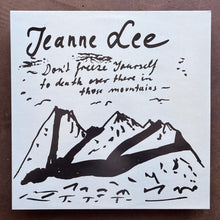 Jeanne Lee
Don't freeze yourself
to death over there in
those mountains —